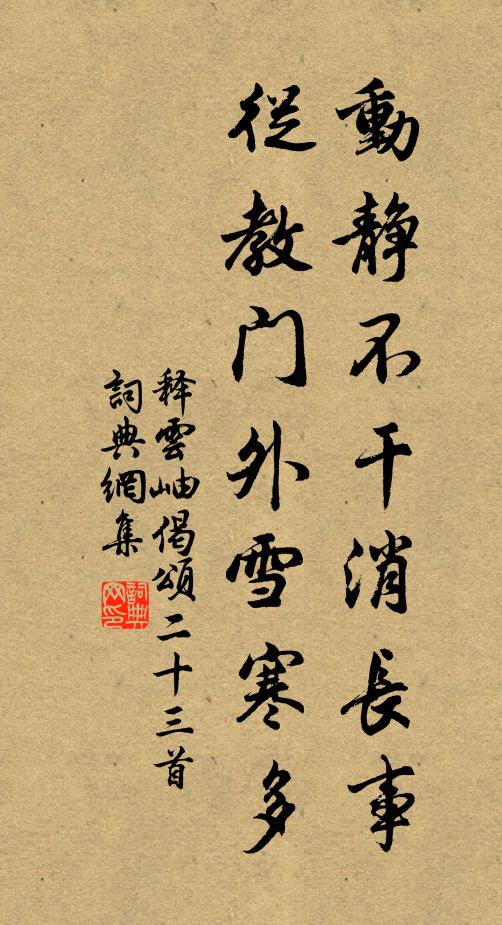 動靜不干消長事
從教門外雪寒多
释雲岫偈頌二十三首
詞典網集
詞典网印